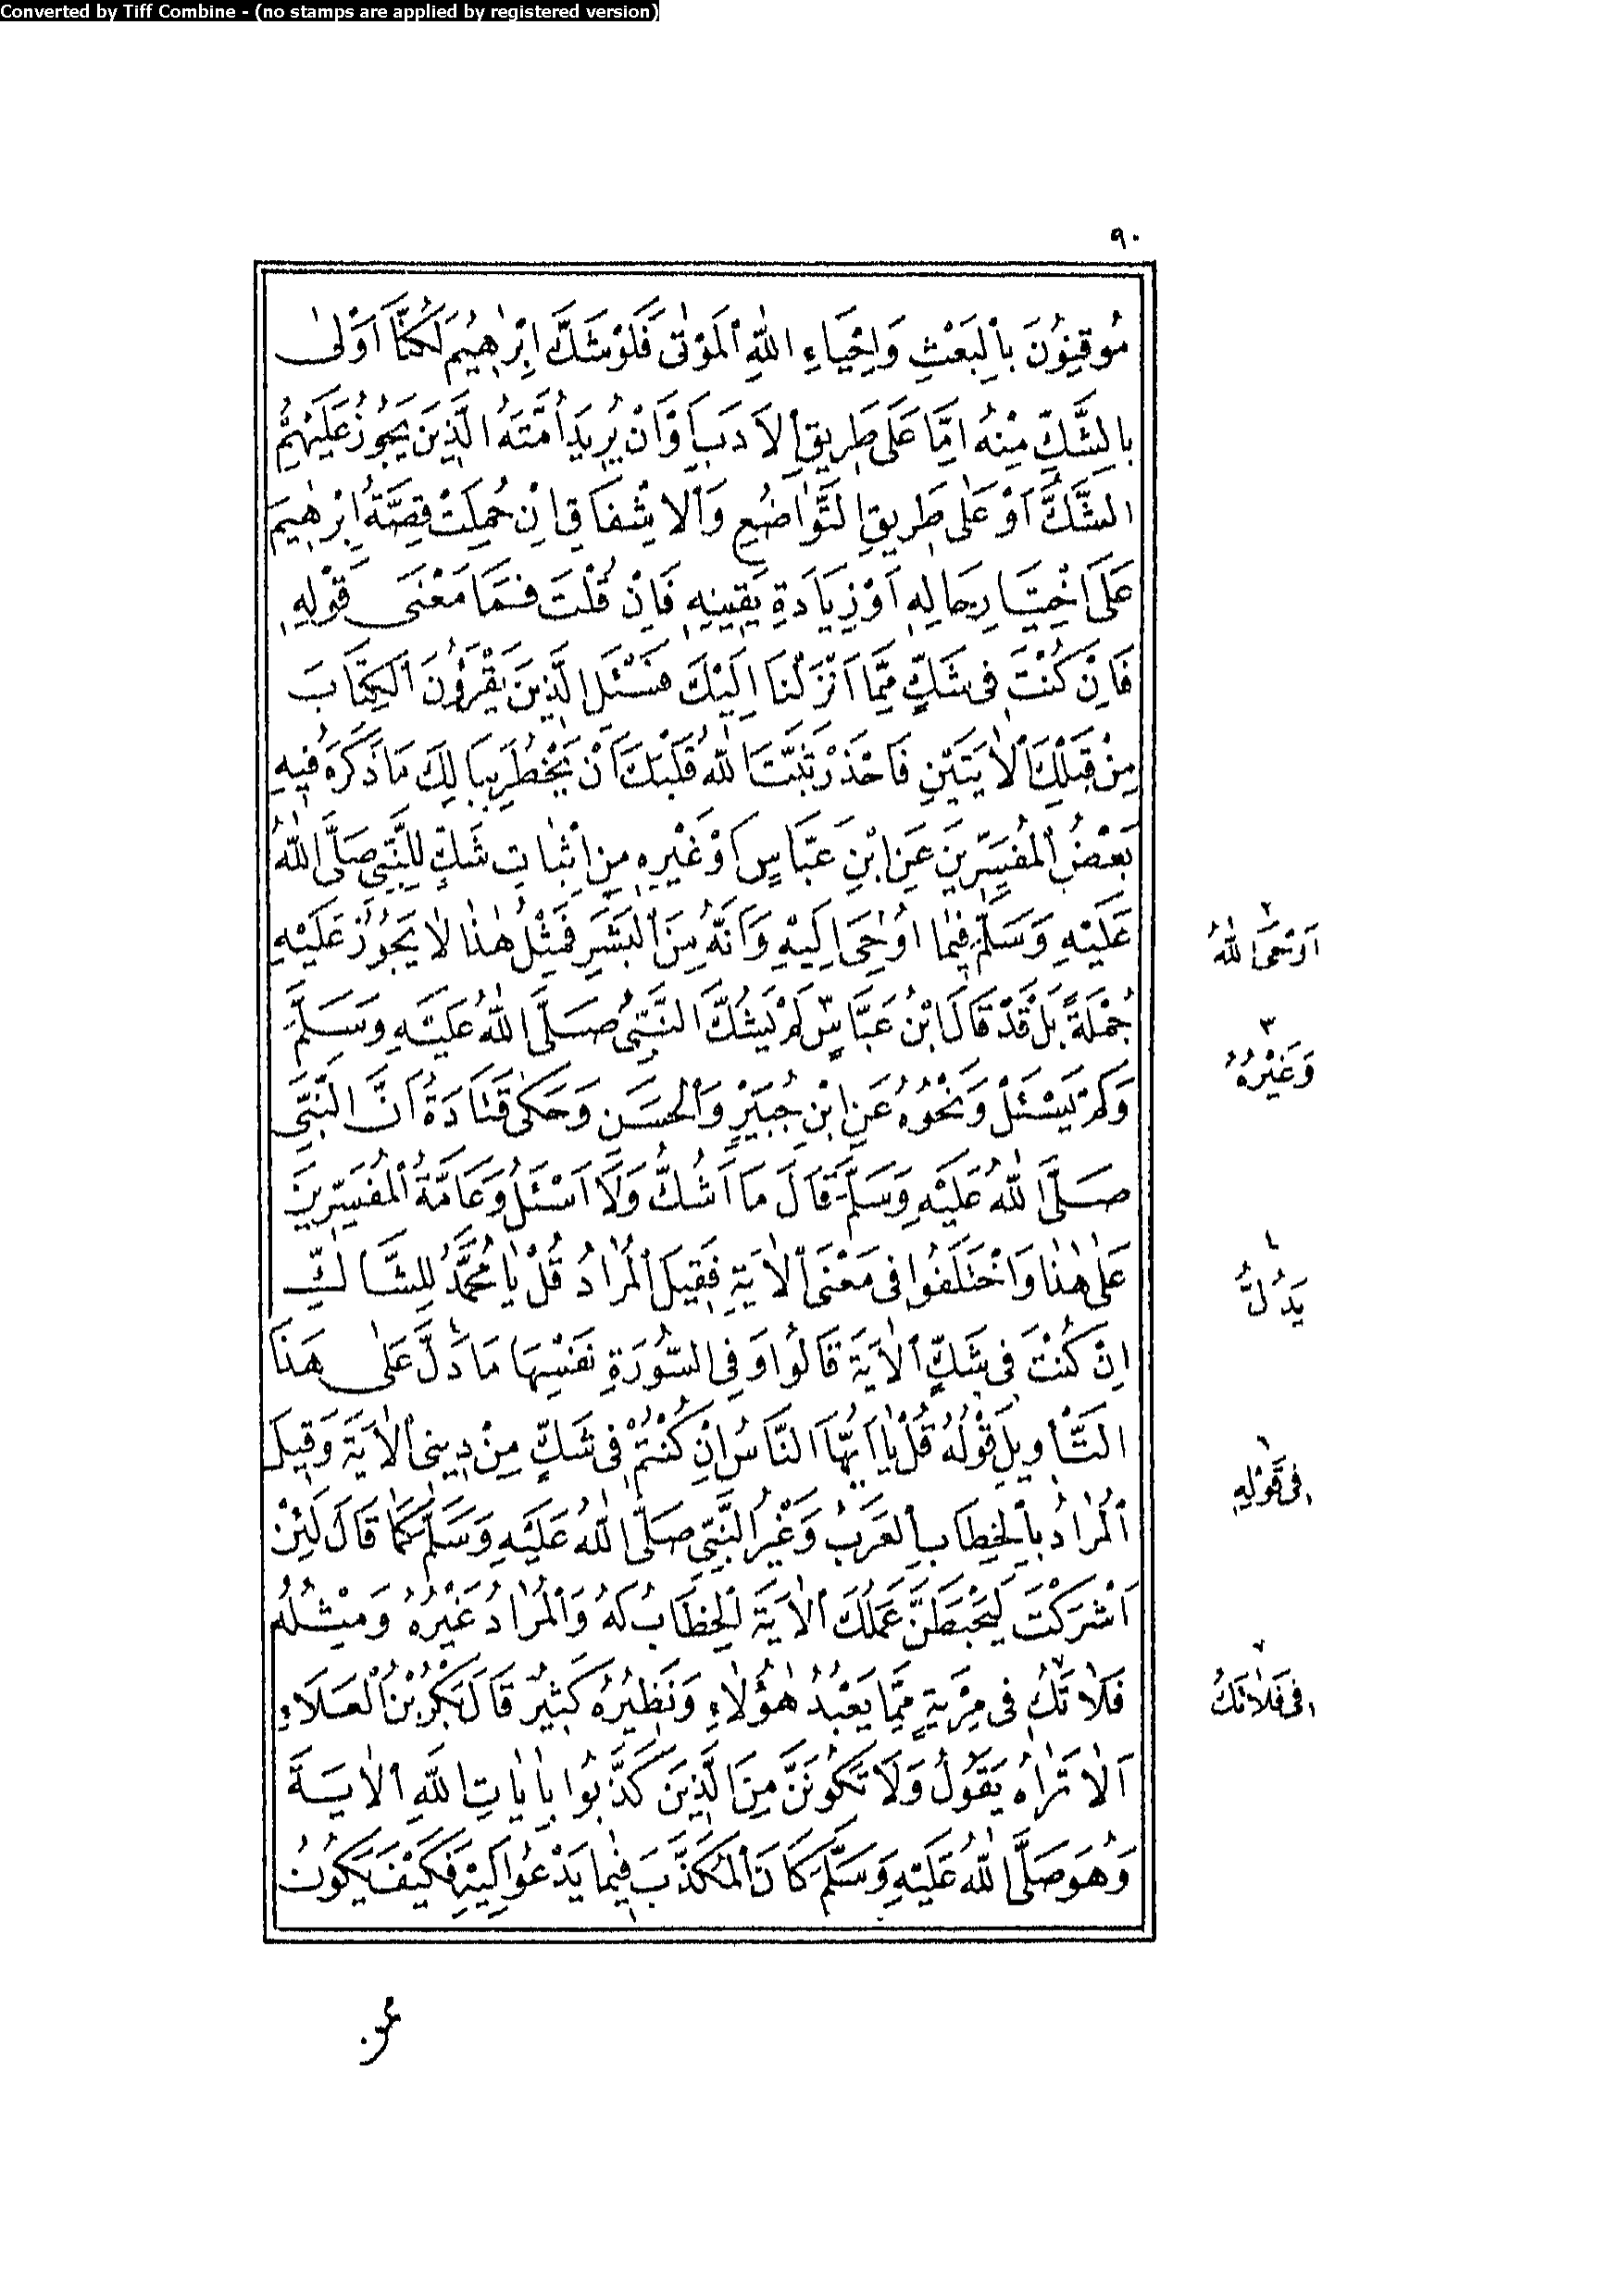 Converted by Tiff Combine - (no stamps are applied by registered version)
٩٠
مُوقِنُونَ بِالْبَعْثِ وَاِحْيَاءِ اللّٰهِ الْمَوْتٰى فَلَوْ شَكَّ اِبْرٰهِيمُ لَكُنَّا اَوْلٰى
بِالشَّكِّ مِنْهُ اِمَّا عَلَى طَرِيقِ الْاَدَبِ اَوْ اَنْ يُرِيدَ اُمَّتَهُ الَّذِينَ يَجُوزُ عَلَيْهِمُ
الشَّكُّ اَوْ عَلٰى طَرِيقِ التَّوَاضُعِ وَالْاِشْفَاقِ اِنْ حُمِلَتْ قِصَّةُ اِبْرٰهِيمَ
عَلَى اخْتِبَارِ حَالِهِ اَوْ زِيَادَةِ يَقِينِهِ فَاِنْ قُلْتَ فَمَا مَعْنَى قَوْلِهِ
فَاِنْ كُنْتَ فِى شَكٍّ مِمَّا اَنْزَلْنَا اِلَيْكَ فَسْئَلِ الَّذِينَ يَقْرَؤُنَ الْكِتَابَ
مِنْ قَبْلِكَ الْاٰيَتَيْنِ فَاحْذَرْ ثَبَّتَ اللّٰهُ قَلْبَكَ اَنْ يَخْطُرَ بِبَالِكَ مَا ذَكَرَهُ فِيهِ
بَعْضُ الْمُفَسِّرِينَ عَنِ ابْنِ عَبَّاسٍ اَوْ غَيْرِهِ مِنْ اِثْبَاتِ شَكٍّ لِلنَّبِىِّ صَلَّى اللّٰهُ
عَلَيْهِ وَسَلَّمَ فِيمَا اُوحِىَ اِلَيْهِ وَاَنَّهُ مِنَ الْبَشَرِ فَمِثْلُ هٰذَا لَا يَجُوزُ عَلَيْهِ
جُمْلَةً بَلْ قَدْ قَالَ ابْنُ عَبَّاسٍ لَمْ يَشُكَّ النَّبِىُّ صَلَّى اللّٰهُ عَلَيْهِ وَسَلَّمَ
وَلَمْ يَسْئَلْ وَنَحْوُهُ عَنِ ابْنِ جُبَيْرٍ وَالْحَسَنِ وَحَكٰى قَتَادَةُ اَنَّ النَّبِىَّ
صَلَّى اللّٰهُ عَلَيْهِ وَسَلَّمَ قَالَ مَا اَشُكُّ وَلَا اَسْئَلُ وَعَامَّةُ الْمُفَسِّرِينَ
عَلٰى هٰذَا وَاخْتَلَفُوا فِى مَعْنَى الْاٰيَةِ فَقِيلَ الْمُرَادُ قُلْ يَا مُحَمَّدُ لِلشَّاكِّ
اِنْ كُنْتَ فِى شَكٍّ الْاٰيَةَ قَالُوا وَفِى السُّورَةِ نَفْسِهَا مَا دَلَّ عَلٰى هٰذَا
التَّأْوِيلِ قَوْلُهُ قُلْ يَا اَيُّهَا النَّاسُ اِنْ كُنْتُمْ فِى شَكٍّ مِنْ دِينِى الْاٰيَةَ وَقِيلَ
الْمُرَادُ بِالْخِطَابِ الْعَرَبُ وَغَيْرُ النَّبِىِّ صَلَّى اللّٰهُ عَلَيْهِ وَسَلَّمَ كَمَا قَالَ لَئِنْ
اَشْرَكْتَ لَيَحْبَطَنَّ عَمَلُكَ الْاٰيَةَ الْخِطَابُ لَهُ وَالْمُرَادُ غَيْرُهُ وَمِثْلُهُ
فَلَا تَكُ فِى مِرْيَةٍ مِمَّا يَعْبُدُ هٰؤُلَاءِ وَنَظِيرُهُ كَثِيرٌ قَالَ بَكْرُ بْنُ الْعَلَاءِ
اَلَا تَرَاهُ يَقُولُ وَلَا تَكُونَنَّ مِنَ الَّذِينَ كَذَّبُوا بِاٰيَاتِ اللّٰهِ الْاٰيَةَ
وَهُوَ صَلَّى اللّٰهُ عَلَيْهِ وَسَلَّمَ كَانَ الْمُكَذَّبَ فِيمَا يَدْعُو اِلَيْهِ فَكَيْفَ يَكُونُ
٢
اَوْحَى اللّٰهُ
٣
وَغَيْرُهُ
٤
يَدُلُّ
٦
فِى قَوْلِهِ
٧
فِى فَلَا تَكُ